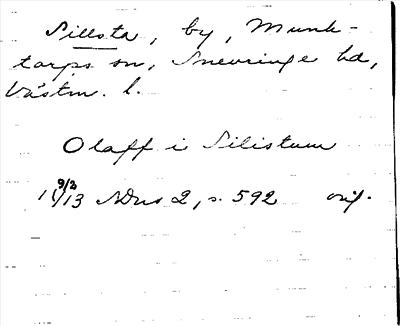 Sillsta, by, Munk-
torps sn, Snevringe hd,
Västm. l.
Olaff i Silistum
9/2 1413 SDns 2, s. 592 orig.